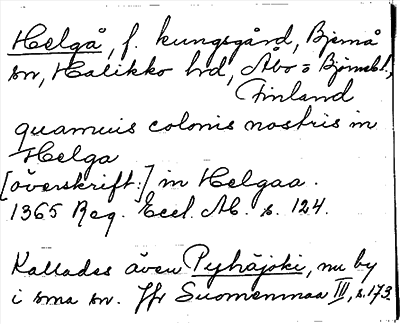 Helgå, f. kungsgård, Bjernå
sn, Halikko hd, Åbo o Björnebl.,
Finland
quamuis colonis nostris in
Helga
[överskrift:] in Helgaa.
1365 Reg. Eccl. Ab. s. 124.
Kallades även Pyhäjoki, nu by
i sma sn. Jfr Suomenmaa III, s. 173.